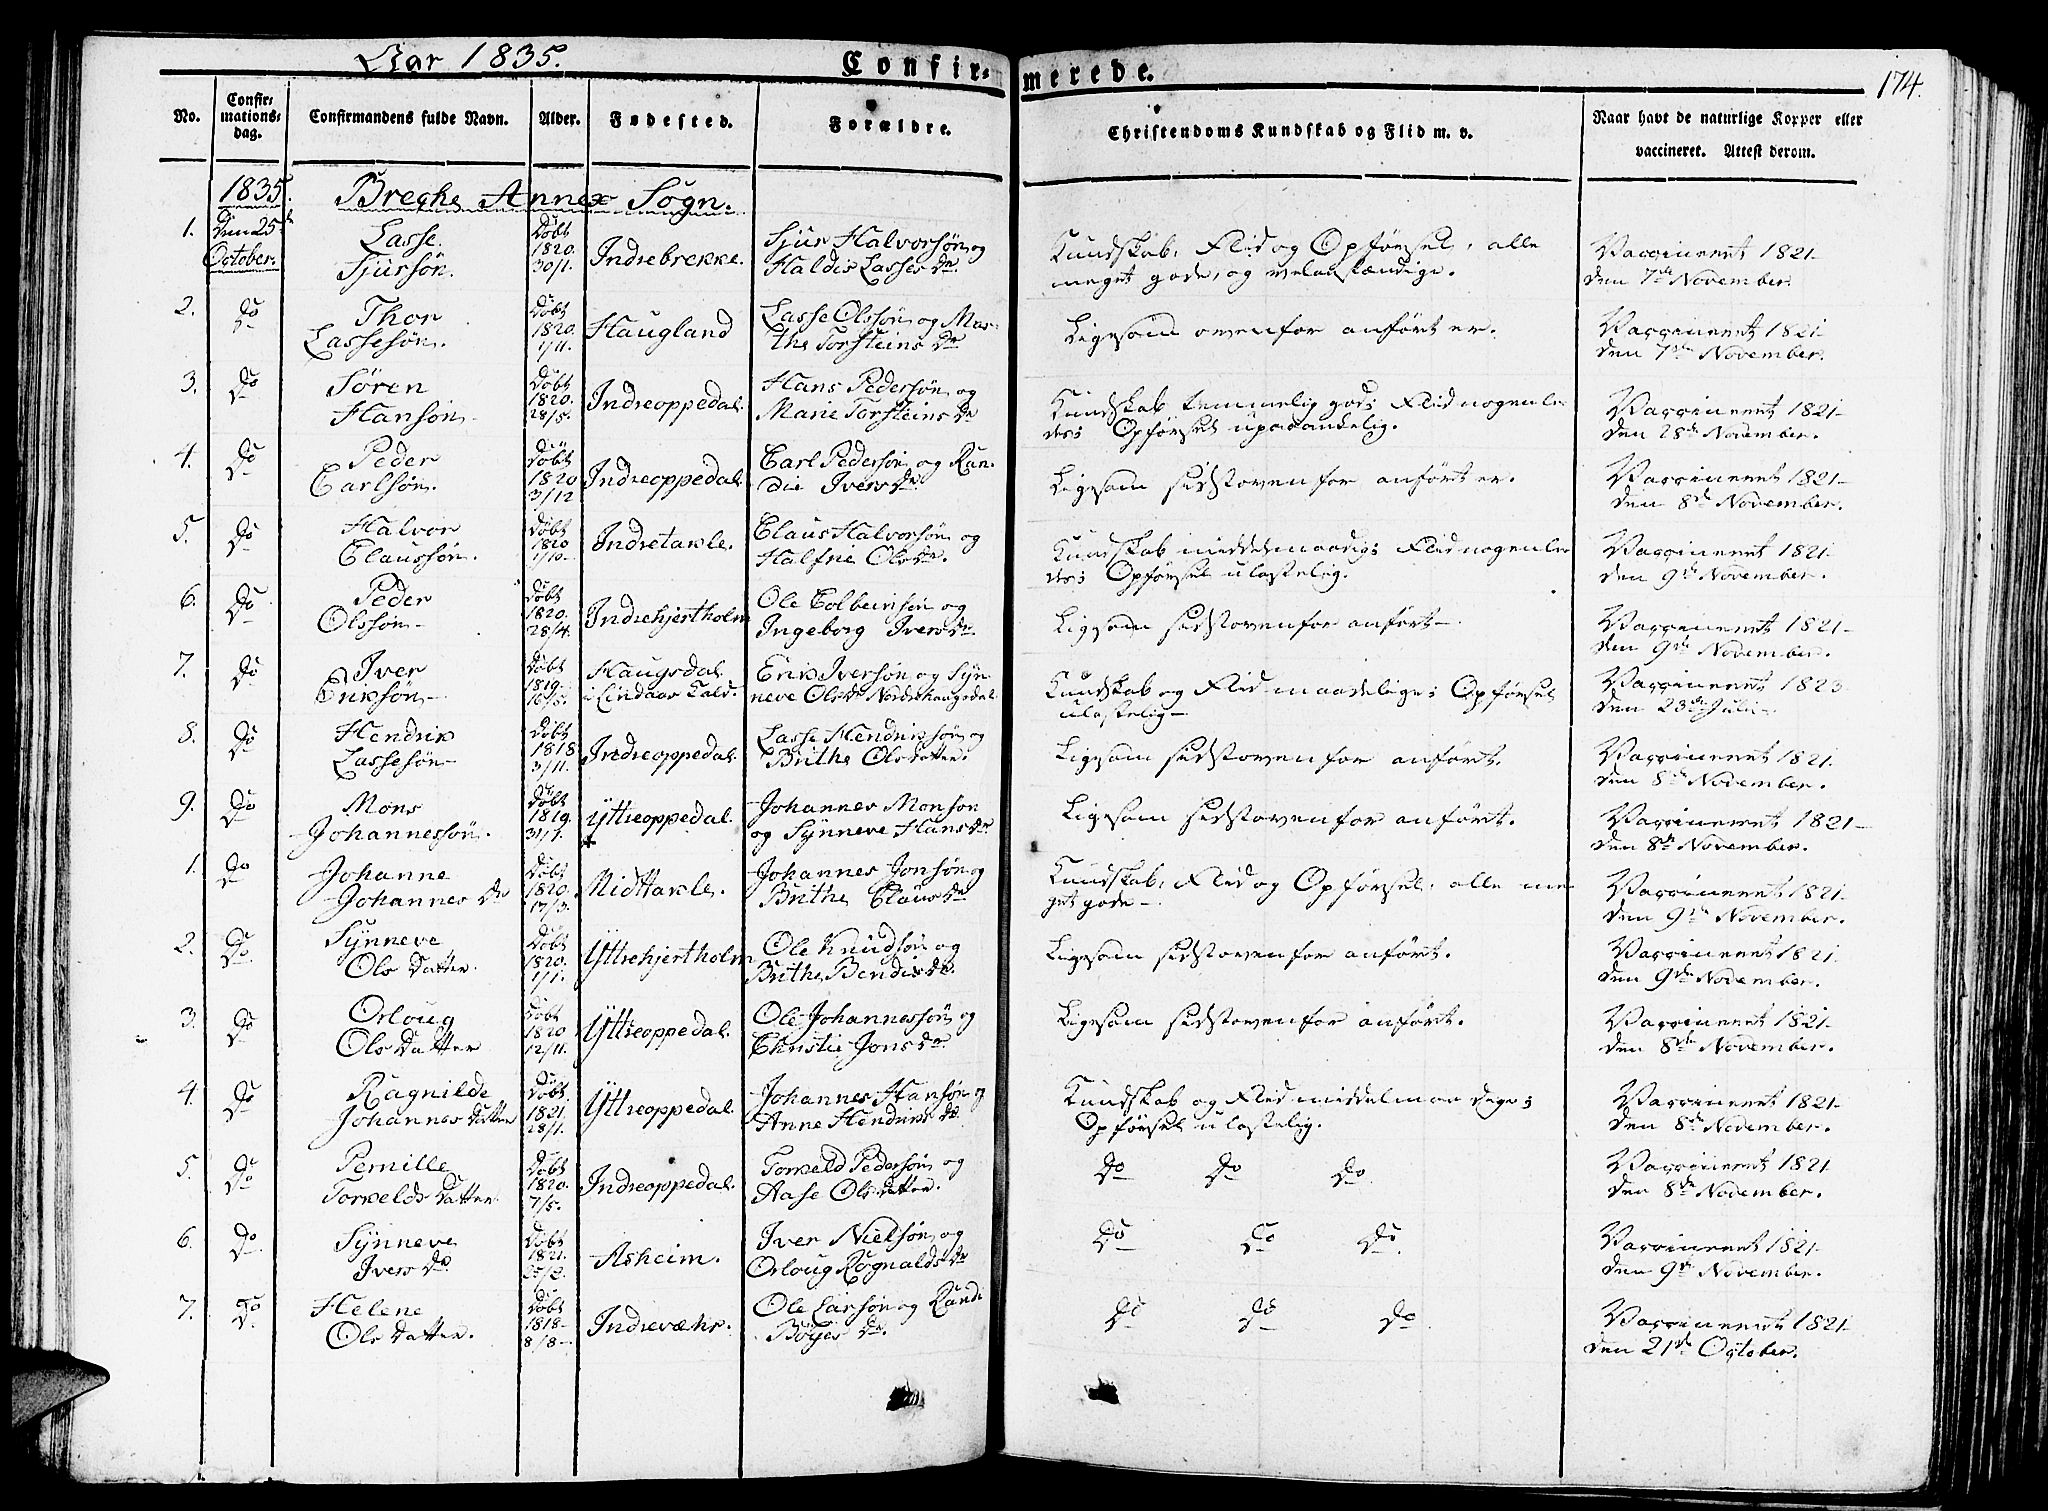 Aar 1835.
Confirmerede.
174.
No.
Confirmationsdag.
Confirmandens fulde Navn.
Alder.
Fødested.
Forældre.
Christendoms Kundskab og Flid m. v.
Naar havt de naturlige Kopper eller
vaccineret. Attest derom.
1835.
Breche Annex Sogn.
1. Den 25de October. Lasse Sjursön. Döbt 1820. 30/1. Indrebrekke. Sjur Halvorsön og Haldis Lasses Dr. Kundskab, Flid og Opførsel, alle meget gode, og velanstændige. Vaccineret 1821. den 7de November.
2. Do Thor Lassesön. Döbt 1820. 1/11. Haugland Lasse Olssön og Marthe Torsteins Dr Ligesom ovenfor anført er. Vaccineret 1821. den 7de November.
3. Do Sören Hansön. Döbt 1820. 28/5. Indreoppedal. Hans Pedersön og Marie Torsteins Dr Kundskab temmelig god; Flid nogenledes; Opførsel upaaandelig. Vaccineret 1821. den 28de November.
4. Do Peder Carlsön. Döbt 1820 3/12 Indreoppedal. Carl Pedersön og Randie Ivers Dr. Ligesom sidstovenfor anført er. Vaccineret 1821. den 8de November.
5. Do Halvor Claussön. Döbt 1820 1/10. Indretakle. Claus Halvorsön og Halfrie Ols Dr. Kundskab middelmaadig; Flid nogenledes; Opførsel ulastelig. Vaccineret 1821. den 9de November.
6. Do Peder Olssön. Döbt 1820. 28/4. Indrehjertholm Ole Colbeinsön og Ingeborg Ivers Dr. Ligesom sidstovenfor anført. Vaccineret 1821. den 9de November.
7. Do Iver Eriksön. Döbt 1819. 16/5. Haugsdal i Lindaas Kald. Erik Iversön og Synneve Ols Dr Nordrehaugsdal Kundskab og Flid maadelige; Opførsel ulastelig. Vaccineret 1823. den 23de Juli.
8. Do Hendrik Lassesön. Döbt 1818 3/11. Indreoppedal. Lasse Hendriksön og Brithe Ols Datter. Ligesom sidstovenfor anført. Vaccineret 1821. den 8de November.
9. Do Mons Johannessön. Döbt 1819. 31/1. Yttreoppedal. Johannes Monson og Synneve Hans Dr. Ligesom sidstovenfor anført. Vaccineret 1821. den 8de November.
1. Do Johanne Johannes Dr Döbt 1820. 17/3. Midttakle. Johannes Jonsön og Brithe Claus Dr Kundskab, Flid og Opførsel, alle meget gode. Vaccineret 1821. den 9de November.
2. Do Synneve Ols Datter. Döbt 1820. 1/1. Yttrehjertholm Ole Knudsön og Brithe Bendix Dr. Ligesom sidstovenfor anført. Vaccineret 1821. den 9de November.
3. Do Orloug Ols Datter Döbt 1820 12/11. Yttreoppedal. Ole Johannessön og Christie Jons Dr. Ligesom sidstovenfor anført. Vaccineret 1821. den 8de November.
4. Do Ragnilde Johannes Datter Döbt 1821. 28/1. Yttreoppedal. Johannes Hansön og Anne Hendriks Dr. Kundskab og Flid middelmaadige; Opførsel ulastelig. Vaccineret 1821. den 8de November.
5. Do Pernille Torkelds Datter. Döbt 1820. 7/5. Indreoppedal. Torkeld Pedersön og Aase Ols Datter. Do Do Do. Vaccineret 1821 den 8de November.
6. Do Synneve Ivers Dr. Döbt 1821. Asheim. Iver Nielsön og Orloug Rognalds Dr Do Do Do. Vaccineret 1821. den 9de November.
7. Do Helene Ols Datter. Döbt 1818. 8/8. Indrevæhr. Ole Larsön og Randi Böyes Dr. Do Do Do. Vaccineret 1821. den 21de October.